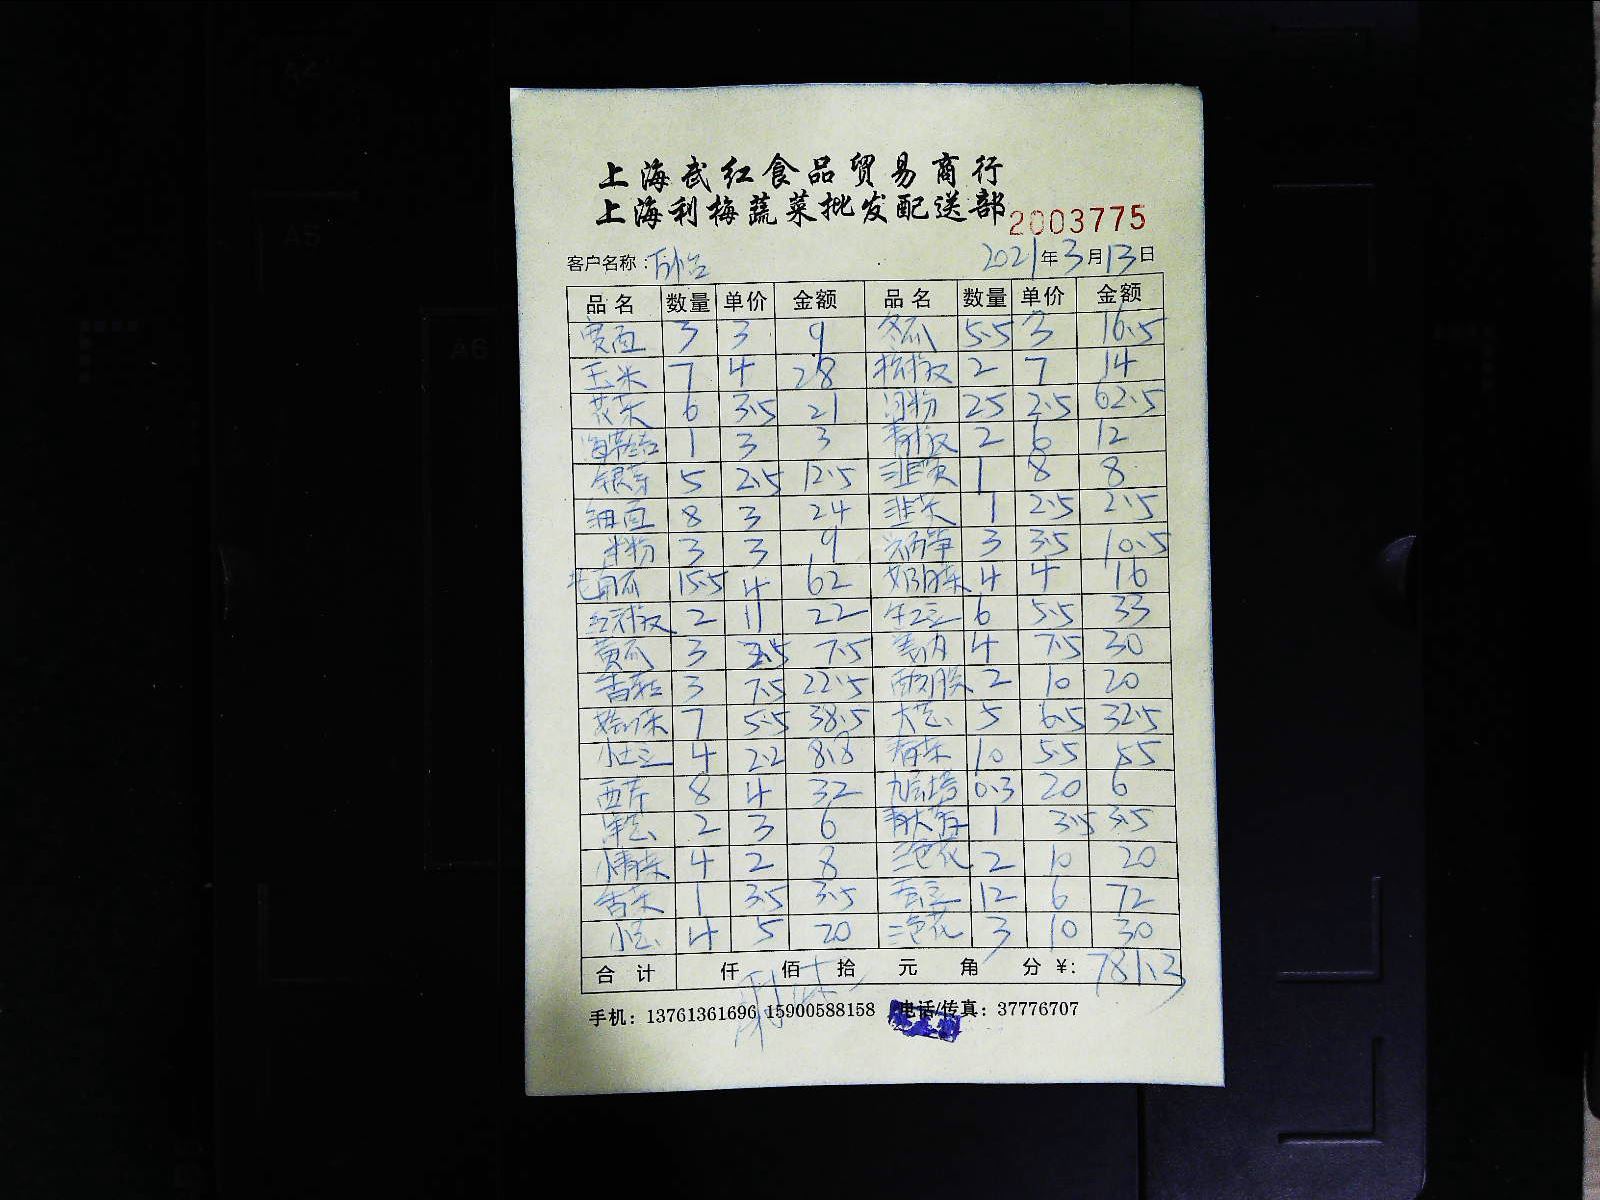 上海武红食品贸易商行
上海利梅蔬菜批发配送部 2003775
客户名称： 2021年3月13日
品名 数量 单价 金额 品名 数量 单价 金额
宽面 3 3 9 冬瓜 5.5 3 16.5
玉米 7 4 28 2 7 14
花菜 6 3.5 21 河粉 25 2.5 62.5
海带结 1 3 3 青椒 2 6 12
银芽 5 2.5 12.5 韭黄 1 8 8
细面 8 3 24 韭菜 1 2.5 2.5
米粉 3 3 9 莴笋 3 3.5 10.5
15.5 4 62 4 4 16
红椒 2 11 22 毛豆 6 5.5 33
黄瓜 3 2.5 7.5 4 7.5 30
香菇 3 7.5 22.5 2 10 20
娃娃菜 7 5.5 38.5 大葱 5 6.5 32.5
小土豆 4 2.2 8.8 青菜 10 5.5 55
西芹 8 4 32 九层塔 0.3 20 6
洋葱 2 3 6 青大蒜 1 3.5 3.5
小青菜 4 2 8 三色花 2 10 20
香菜 1 3.5 3.5 12 6 72
小葱 4 5 20 三色花 3 10 30
合计 仟 佰 拾 元 角 分 ¥: 781.3
手机：13761361696 15900588158 电话/传真：37776707